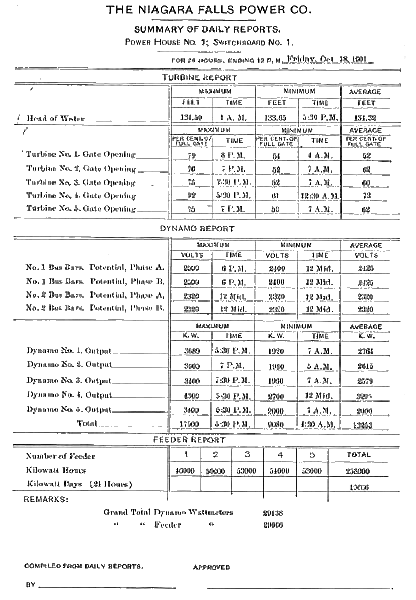 THE NIAGARA FALLS POWER CO.
SUMMARY OF DAILY REPORTS.
POWER HOUSE NO. 1; SWITCHBOARD NO. 1.
FOR 24 HOURS, ENDING 12 P.M. Friday, Oct. 18, 1901
TURBINE REPORT
MAXIMUM MINIMUM AVERAGE
FEET TIME FEET TIME FEET
Head of Water 1 A.M. 5:30 P.M.
MAXIMUM MINIMUM AVERAGE
PER CENT. OF FULL GATE TIME PER CENT. OF FULL GATE TIME PER CENT. OF FULL GATE
Turbine No. 1. Gate Opening 79 8 P.M. 4 A.M. 62
Turbine No. 2. Gate Opening 76 7 P.M. 52 7 A.M. 62
Turbine No. 3. Gate Opening 75 7:30 P.M. 52 7 A.M.
Turbine No. 4. Gate Opening 92 5:30 P.M. 61 12:30 A.M. 73
Turbine No. 5. Gate Opening 75 7 P.M. 7 A.M. 62
DYNAMO REPORT
MAXIMUM MINIMUM AVERAGE
VOLTS TIME VOLTS TIME VOLTS
No. 1 Bus Bars. Potential, Phase A. 2500 6 P.M. 2400 12 Mid. 2425
No. 1 Bus Bars. Potential, Phase B. 2500 6 P.M. 2400 12 Mid. 2425
No. 2 Bus Bars. Potential, Phase A. 2320 12 Mid. 2320 12 Mid. 2320
No. 2 Bus Bars. Potential, Phase B. 2320 12 Mid. 2320 12 Mid. 2320
MAXIMUM MINIMUM AVERAGE
K.W. TIME K.W. TIME K.W.
Dynamo No. 1. Output 5:30 P.M. 1920 7 A.M.
Dynamo No. 2. Output 7 P.M. 5 A.M. 2615
Dynamo No. 3. Output 3400 7:30 P.M. 1960 7 A.M. 2579
Dynamo No. 4. Output 4300 5:30 P.M. 2700 12 Mid.
Dynamo No. 5. Output 3400 5:30 P.M. 2000 7 A.M.
Total 5:30 P.M. 4:30 A.M.
FEEDER REPORT
Number of Feeder 1 2 3 4 5 TOTAL
Kilowatt Hours 53000 54000 53000
Kilowatt Days (24 Hours)
REMARKS:
Grand Total Dynamo Wattmeters
" " Feeder "
COMPILED FROM DAILY REPORTS. APPROVED
BY